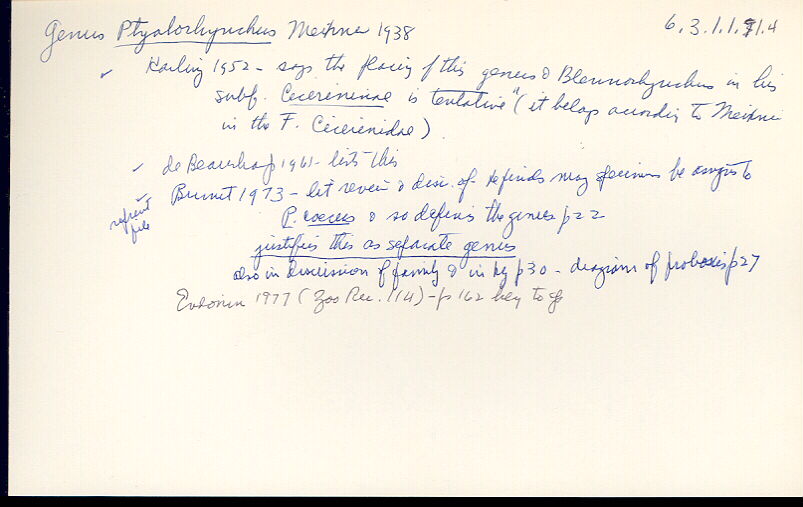 Genus Ptyalorhynchus Meixner 1938
6.3.1.1.91.4
✓ Karling 1952 - says the placing of this genus & Blennorhynchus in his
subf. Cicerininae is "tentative" (it belongs according to Meixner
in the F. Cicerinidae)
✓ de Beauchamp 1961 - lists this
reprint file
Brunet 1973 - lit review & disc. of. He finds may specimens be assigned to
P. coecus & so defines the genus p 22
justifies this as separate genus
also in discussion of family & in key p 30 - diagram of proboscis p 27
Evdonin 1977 (Zoo Rec. 114) - p 162 key to sp